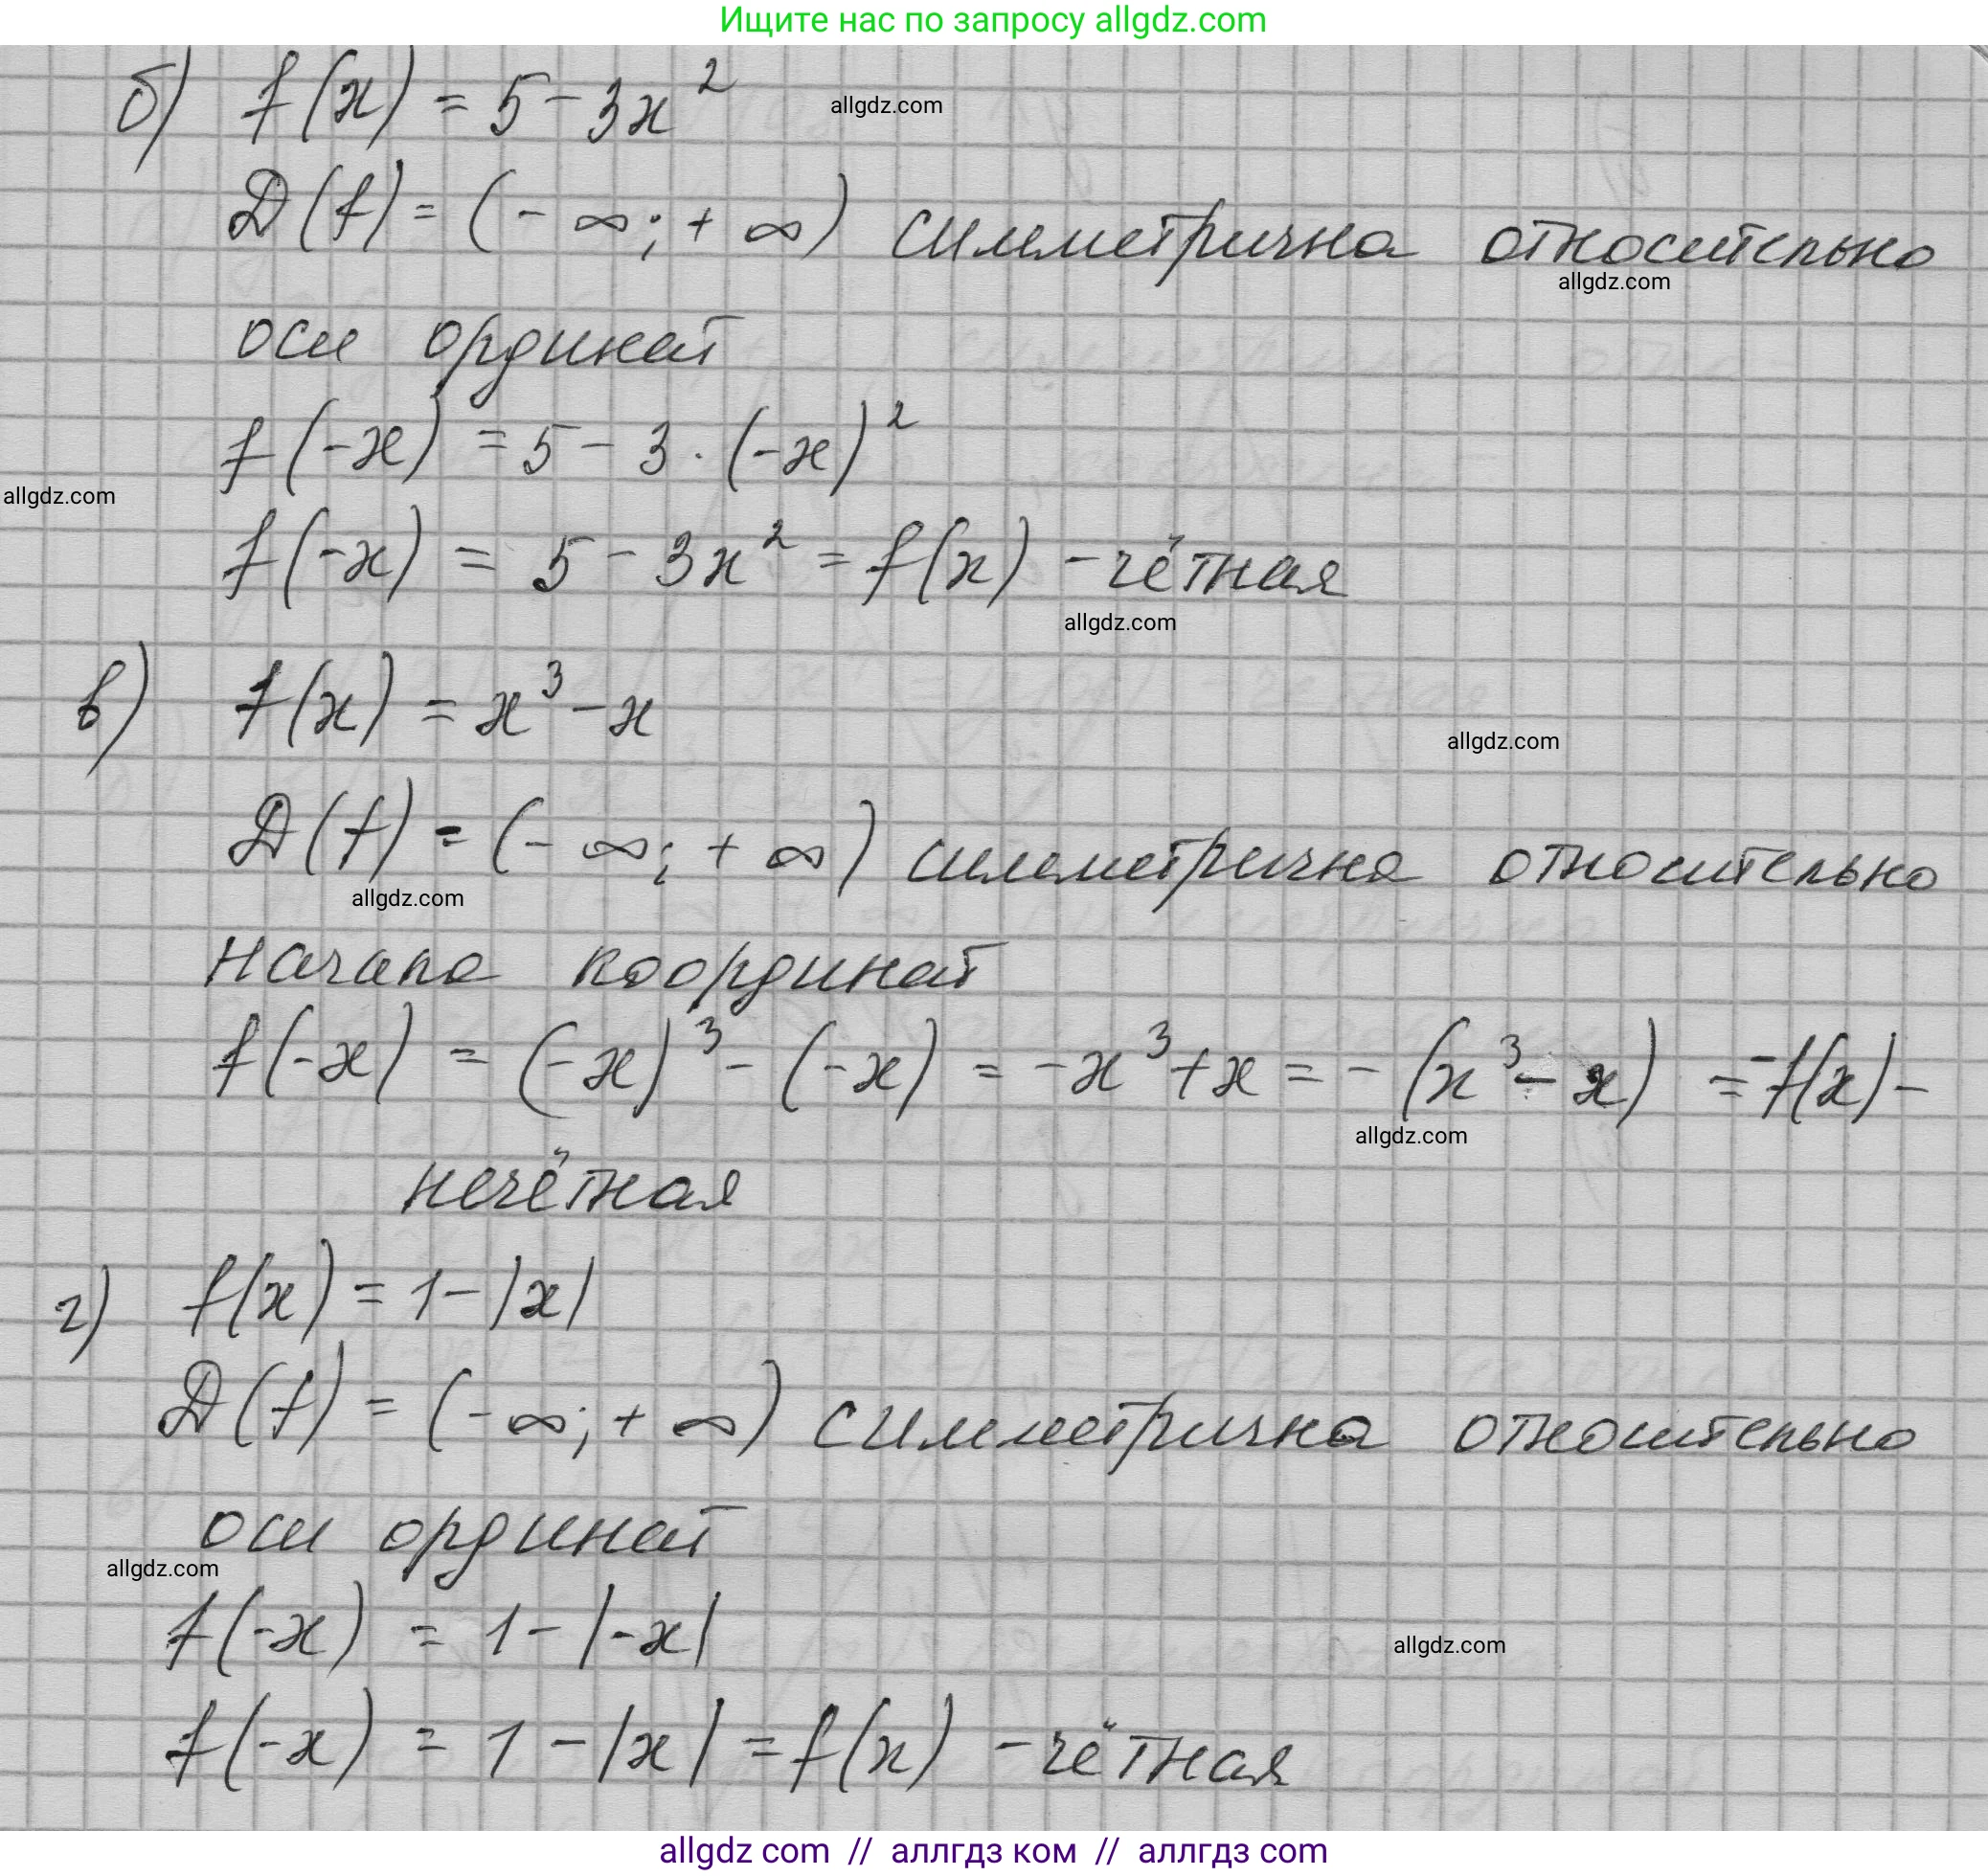 Ищите нас по запросу allgdz.com
б) f(x) = 5 - 3x²
allgdz.com
D(f) = (- ∞; + ∞) симметрична относительно
allgdz.com
оси ординат
f(-x) = 5 - 3 · (-x)²
allgdz.com
f(-x) = 5 - 3x² = f(x) - чётная
allgdz.com
в) f(x) = x³ - x
allgdz.com
D(f) = (- ∞; + ∞) симметрична относительно
allgdz.com
начала координат
f(-x) = (-x)³ - (-x) = -x³ + x = - (x³ - x) = -f(x) -
allgdz.com
нечётная
г) f(x) = 1 - |x|
D(f) = (- ∞; + ∞) симметрична относительно
оси ординат
allgdz.com
f(-x) = 1 - |-x|
allgdz.com
f(-x) = 1 - |x| = f(x) - чётная
allgdz com // аллгдз ком // аллгдз com